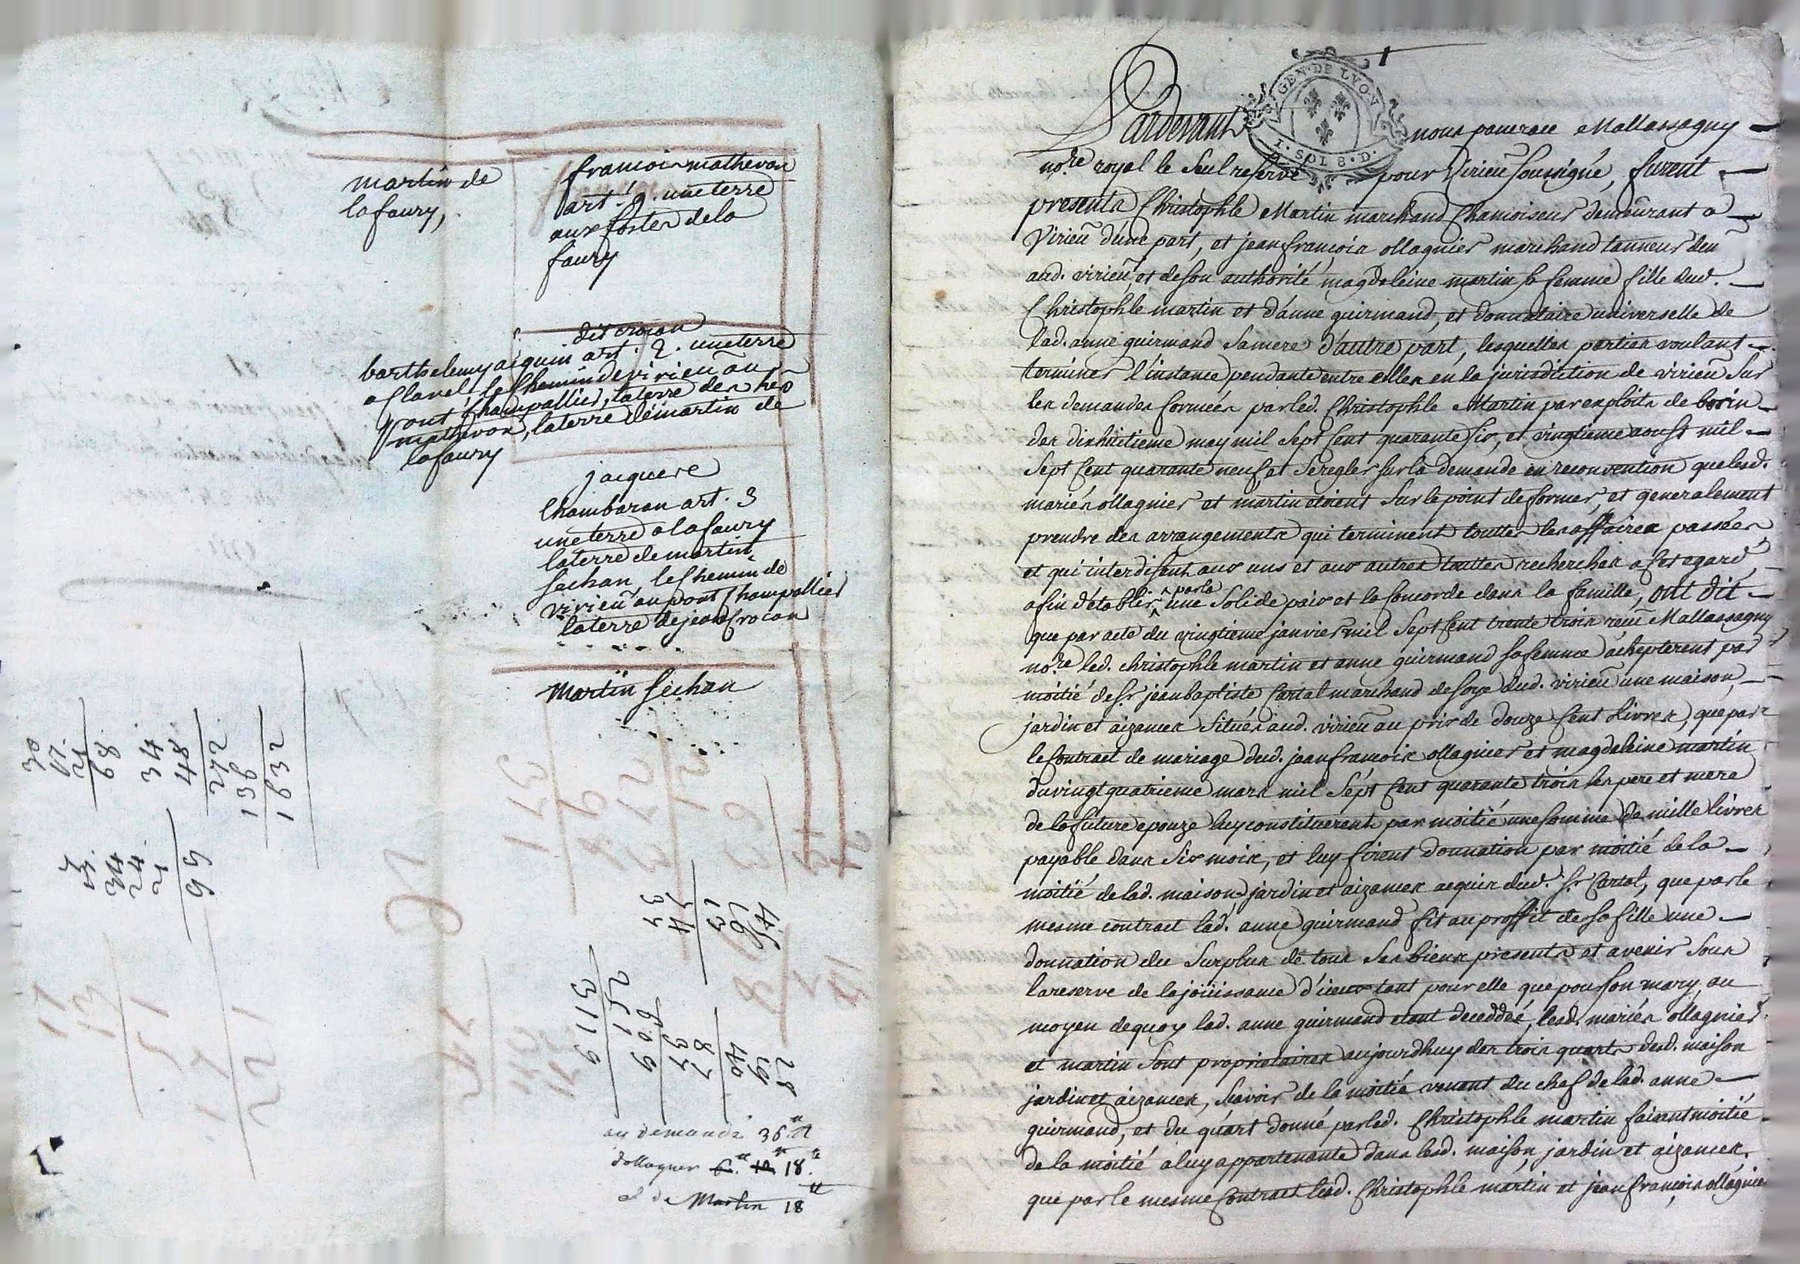 martin de
la faury,
francois mathevon
art. 9. une terre
aux fosses de la
faury
dit crocon
barthelemy aiguin art. 2. une terre
a clavel, le chemin de virieu au
pont champallier, la terre des
mathevon, la terre de martin de
la faury
jacques
Chambaran art. 3
une terre a la faury
la terre de martin
sechan, le chemin de
virieu au pont Champallier
la terre de jean Crocon
Martin sechan
30
17
21
68
34
48
272
136
1632
34
24
99
17
13
51
17
221
3119
6019
37
87
46
19
28
au demandé 36
dollagner 18
et de Martin 18
1
GEN. DE LYON
1. SOL 8. D.
Pardevant nous pancrace Mallassagny
no.re royal le seul reservé pour Virieu soussigné, furent
presents Christophle Martin marchand Chamoiseur demeurant a
Virieu dune part, et jean francois ollagnier marchand tanneur dem
aud. virieu, et de son authorité magdeleine martin sa femme fille dud.
Christophle martin et d'anne guirmand, et donnataire universelle de
lad. anne guirmand sa mere d'autre part, lesquelles parties voulant
terminer l'instance pendante entre elles en la jurisdiction de virieu sur
les demandes formées par led. Christophle Martin par exploits de borin
des dixhuitieme may mil sept cent quarante six, et vingtieme aoust mil
sept cent quarante neuf et se regler sur la demande en reconvention que lesd.
mariés ollagnier et martin etoient sur le point de former, et generalement
prendre des arrangements qui terminent touttes les affaires passées
et qui interdisent aux uns et aux autres touttes recherches a cet egard,
afin d'etablir par la une solide paix et la concorde dans la famille, ont dit
que par acte du vingtieme janvier mil sept cent trente trois receu Mallassagny
no.re led. christophle martin et anne guirmand sa femme achepterent par
moitié de sr. jean baptiste Cartal marchand de soye dud. virieu une maison,
jardin et aizances situés aud. virieu au prix de douze cent livres, que par
le contract de mariage dud. jean francois ollagnier et magdeleine martin
du vingt quatrieme mars mil sept cent quarante trois les pere et mere
de la future epouze luy constituerent par moitié une somme de mille livres
payable dans six mois, et luy firent donnation par moitié de la
moitié de lad. maison, jardin et aizances acquis dud. sr. Cartal, que par le
mesme contract lad. anne guirmand fit au proffit de sa fille une
donnation du surplus de tous ses biens presents et avenir sous
la reserve de la jöüissance d'iceux tant pour elle que pour son mary, au
moyen de quoy lad. anne guirmand etant deceddée, lesd. mariés ollagnier
et martin sont proprietaires aujourdhuy des trois quarts desd. maison
jardin et aizances, scavoir de la moitié venant du chef de lad. anne
guirmand, et du quart donné par led. Christophle martin faisant moitié
de la moitié a luy appartenante dans lesd. maison jardin et aizances,
que par le mesme Contract lesd. Christophle martin et jean francois ollagnier